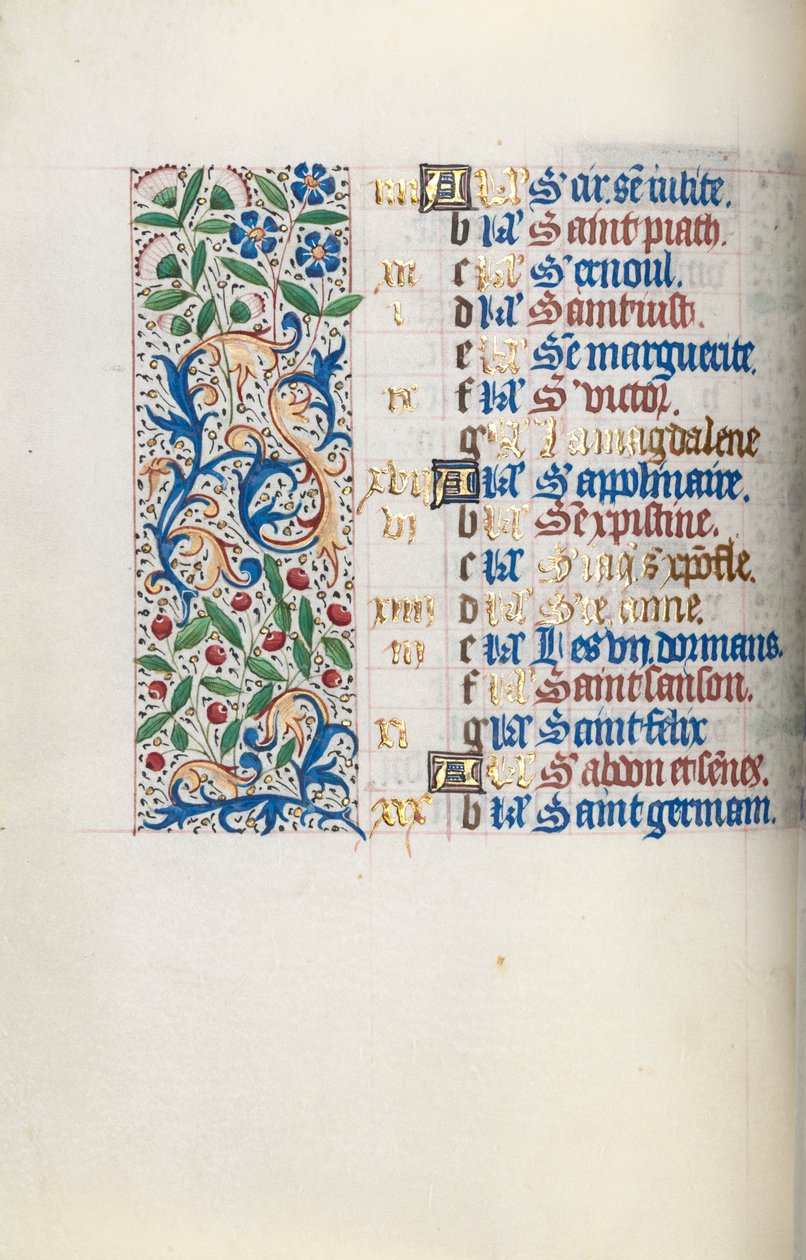 iiii A kł S' cir. sē iulite.
b kł Saint piath.
xii c kł S' ernoul.
i d kł Saint iust.
e kł Sē marguerite.
ix f kł S' victor.
g kł La magdalene
xvii A kł S' appolinaire.
vi b kł Sē xpistine.
c kł S' iaq. s' xpōfle.
xiiii d kł S'te. anne.
iii e kł Les vii. dormans.
f kł Saint sanson.
xi g kł Saint felix
A kł S' abdon et sēnes.
xix b kł Saint germain.